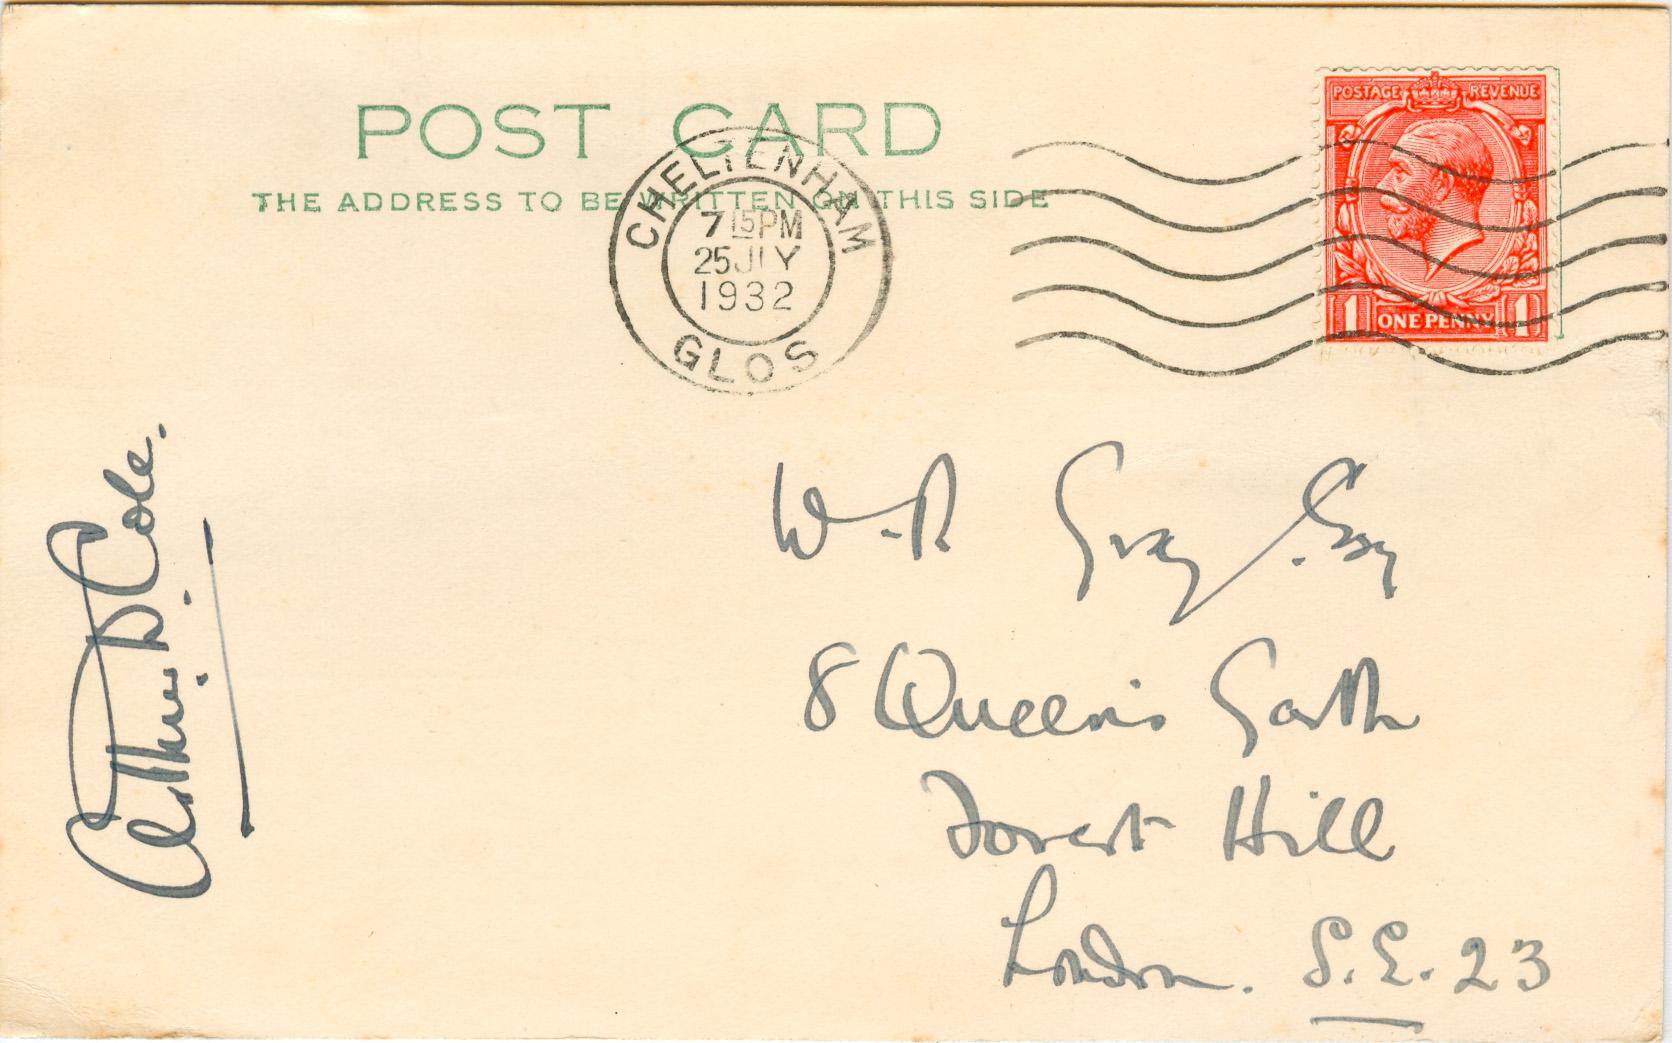 POST CARD
THE ADDRESS TO BE WRITTEN ON THIS SIDE
CHELTENHAM
7 15PM
25 JLY
1932
GLOS
POSTAGE REVENUE
1 ONE PENNY 1
W.R. Gray, Esq
8 Queen's Garth
Forest Hill
London. S.E. 23
Arthur D. Cole.